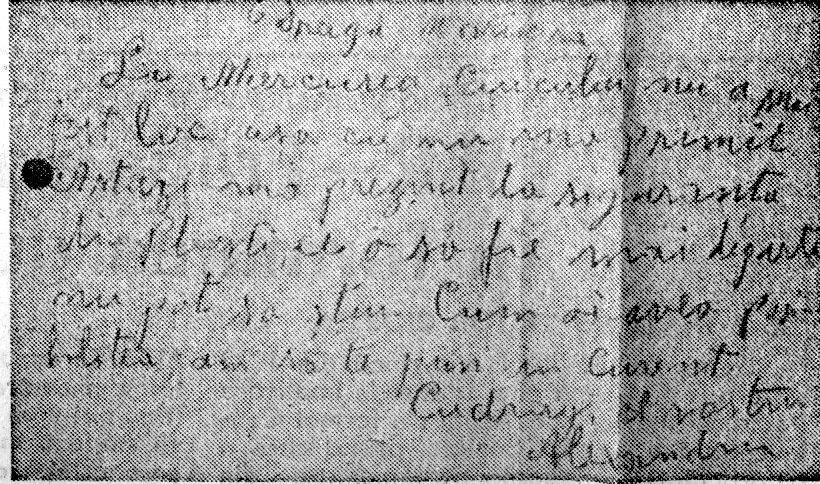 Dragă Monica
La Mercurea Ciucului nu a mai
fost loc asa că nu mă primit
Astazi mă prezint la siguranta
din Ploesti, ce o să fie mai departe
nu pot să știu. Cum oi avea posi-
bilitatea, am să te pun in curent.
Cu drag, al vostru
Alexandru